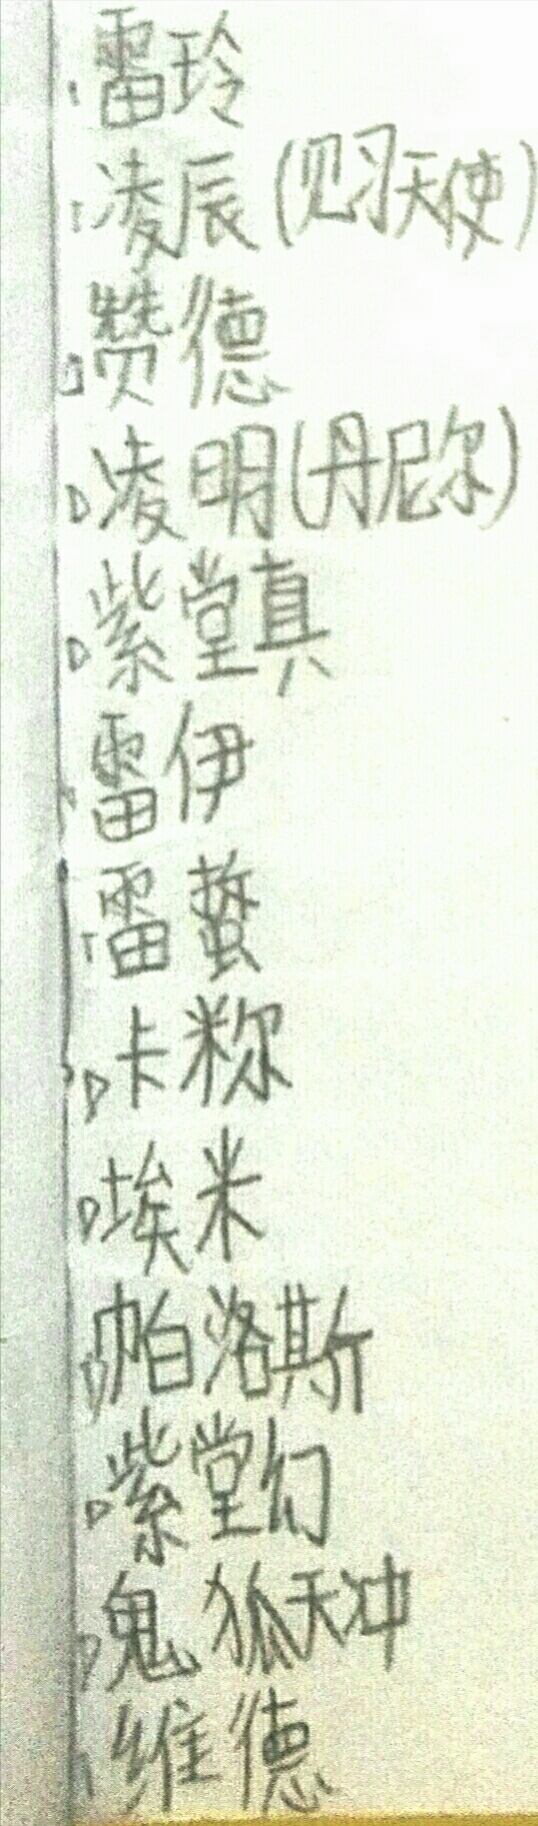 雷玲
凌辰(见习天使)
赞德
凌明(丹尼尔)
紫堂真
雷伊
雷蛰
卡米尔
埃米
帕洛斯
紫堂幻
鬼狐天冲
维德